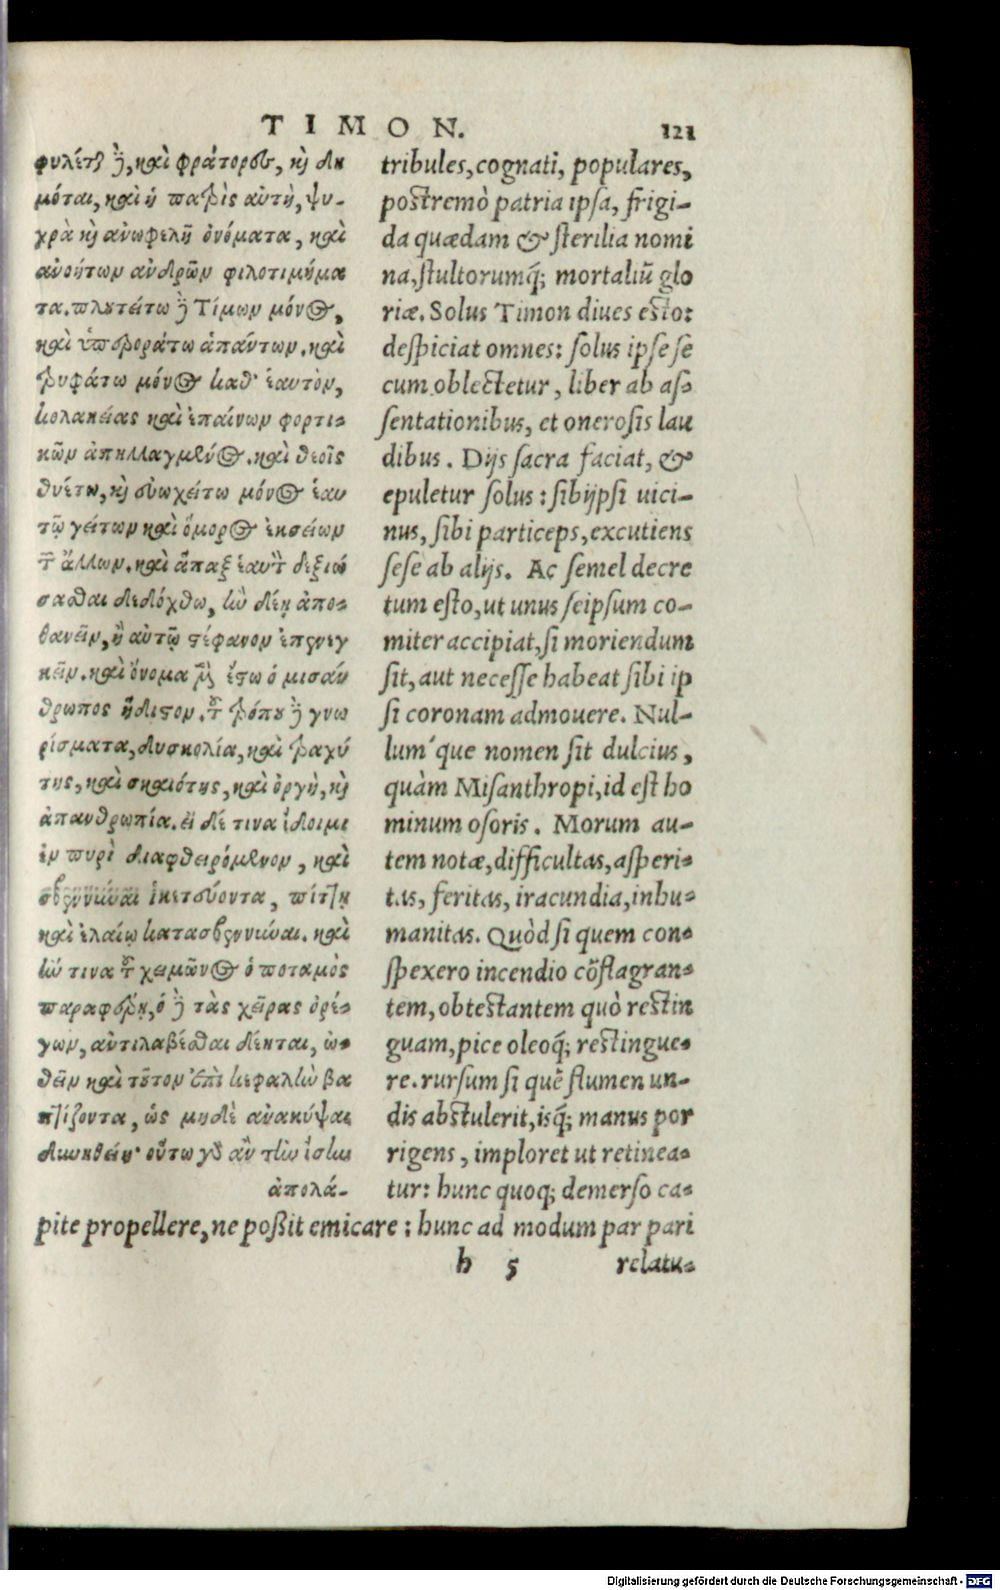 TIMON. 121
φυλέται δὲ, καὶ φράτορες, καὶ δη
μόται, καὶ ἡ πατρὶς αὐτὴ, ψυ-
χρὰ καὶ ἀνωφελῆ ὀνόματα, καὶ
ἀνοήτων ἀνδρῶν φιλοτιμήμα
τα. πλουτείτω δὲ Τίμων μόνος,
καὶ ὑπεροράτω ἁπάντων. καὶ
τρυφάτω μόνος καθ' ἑαυτὸν,
κολακείας καὶ ἐπαίνων φορτι-
κῶν ἀπηλλαγμένος. καὶ θεοῖς
θυέτω, καὶ εὐωχείτω μόνος ἑαυ
τῷ γείτων καὶ ὅμορος ἐκσείων
τῶν ἄλλων. καὶ ἅπαξ ἑαυτὸν δεξιώ
σασθαι δεδόχθω, ἢν δέῃ ἀπο-
θανεῖν, ἢ αὑτῷ στέφανον ἐπενεγ
κεῖν. καὶ ὄνομα μὲν ἔστω ὁ μισάν
θρωπος ἥδιστον. τοῦ τρόπου δὲ γνω
ρίσματα, δυσκολία, καὶ τραχύ
της, καὶ σκαιότης, καὶ ὀργὴ, καὶ
ἀπανθρωπία. εἰ δέ τινα ἴδοιμι
ἐν πυρὶ διαφθειρόμενον, καὶ
σβεννύναι ἱκετεύοντα, πίττῃ
καὶ ἐλαίῳ κατασβεννύναι. καὶ
ἢν τινα τοῦ χειμῶνος ὁ ποταμὸς
παραφέρῃ, ὁ δὲ τὰς χεῖρας ὀρέ-
γων, ἀντιλαβέσθαι δέηται, ὠ-
θεῖν καὶ τοῦτον ἐπὶ κεφαλὴν βα
πτίζοντα, ὡς μηδὲ ἀνακύψαι
δυνηθείη· οὕτω γὰρ ἂν τὴν ἴσην
ἀπολά-
tribules, cognati, populares,
postremò patria ipsa, frigi-
da quædam & sterilia nomi
na, stultorumq́; mortaliũ glo
riæ. Solus Timon diues esto:
despiciat omnes: solus ipse se
cum oblectetur, liber ab as-
sentationibus, et onerosis lau
dibus. Dijs sacra faciat, &
epuletur solus: sibijpsi uici-
nus, sibi particeps, excutiens
sese ab alijs. Ac semel decre
tum esto, ut unus seipsum co-
miter accipiat, si moriendum
sit, aut necesse habeat sibi ip
si coronam admouere. Nul-
lum´que nomen sit dulcius,
quàm Misanthropi, id est ho
minum osoris. Morum au-
tem notæ, difficultas, asperi-
tas, feritas, iracundia, inhu-
manitas. Quòd si quem con-
spexero incendio cõflagran-
tem, obtestantem quò restin
guam, pice oleoq́; restingue-
re. rursum si quẽ flumen un-
dis abstulerit, isq́; manus por
rigens, imploret ut retinea-
tur: hunc quoq; demerso ca-
pite propellere, ne poßit emicare: hunc ad modum par pari
h 5 relatu-
Digitalisierung gefördert durch die Deutsche Forschungsgemeinschaft - DFG